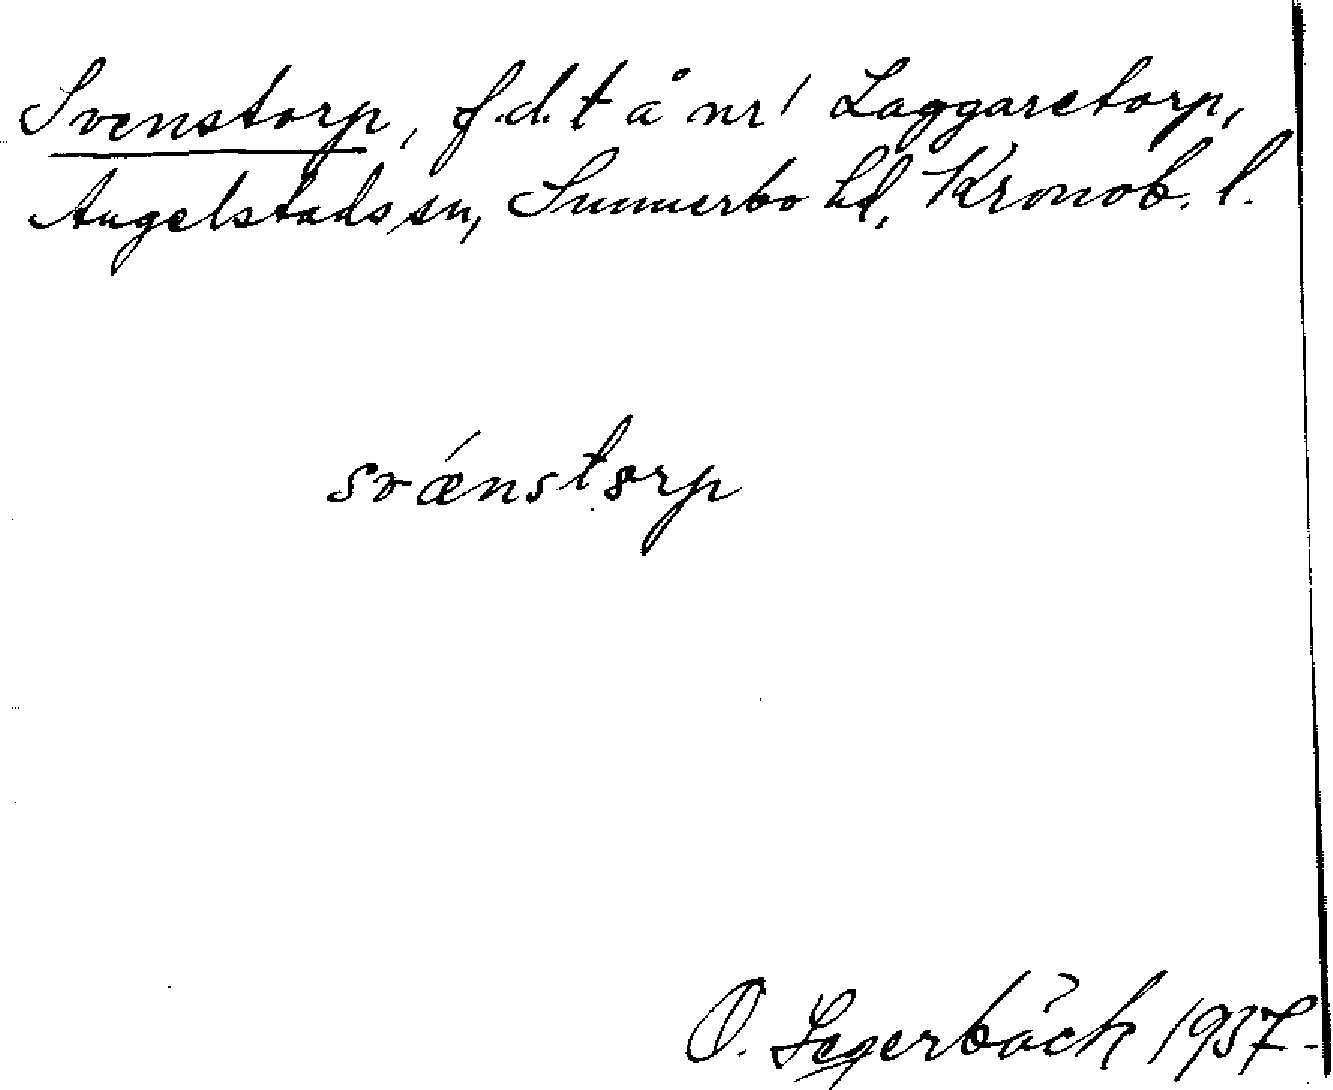 Svenstorp, f.d. t å nr 1 Laggaretorp,
Angelstads sn, Sunnerbo hd, Kronob. l.
svǽnstorp
O. Segerbäck 1937.